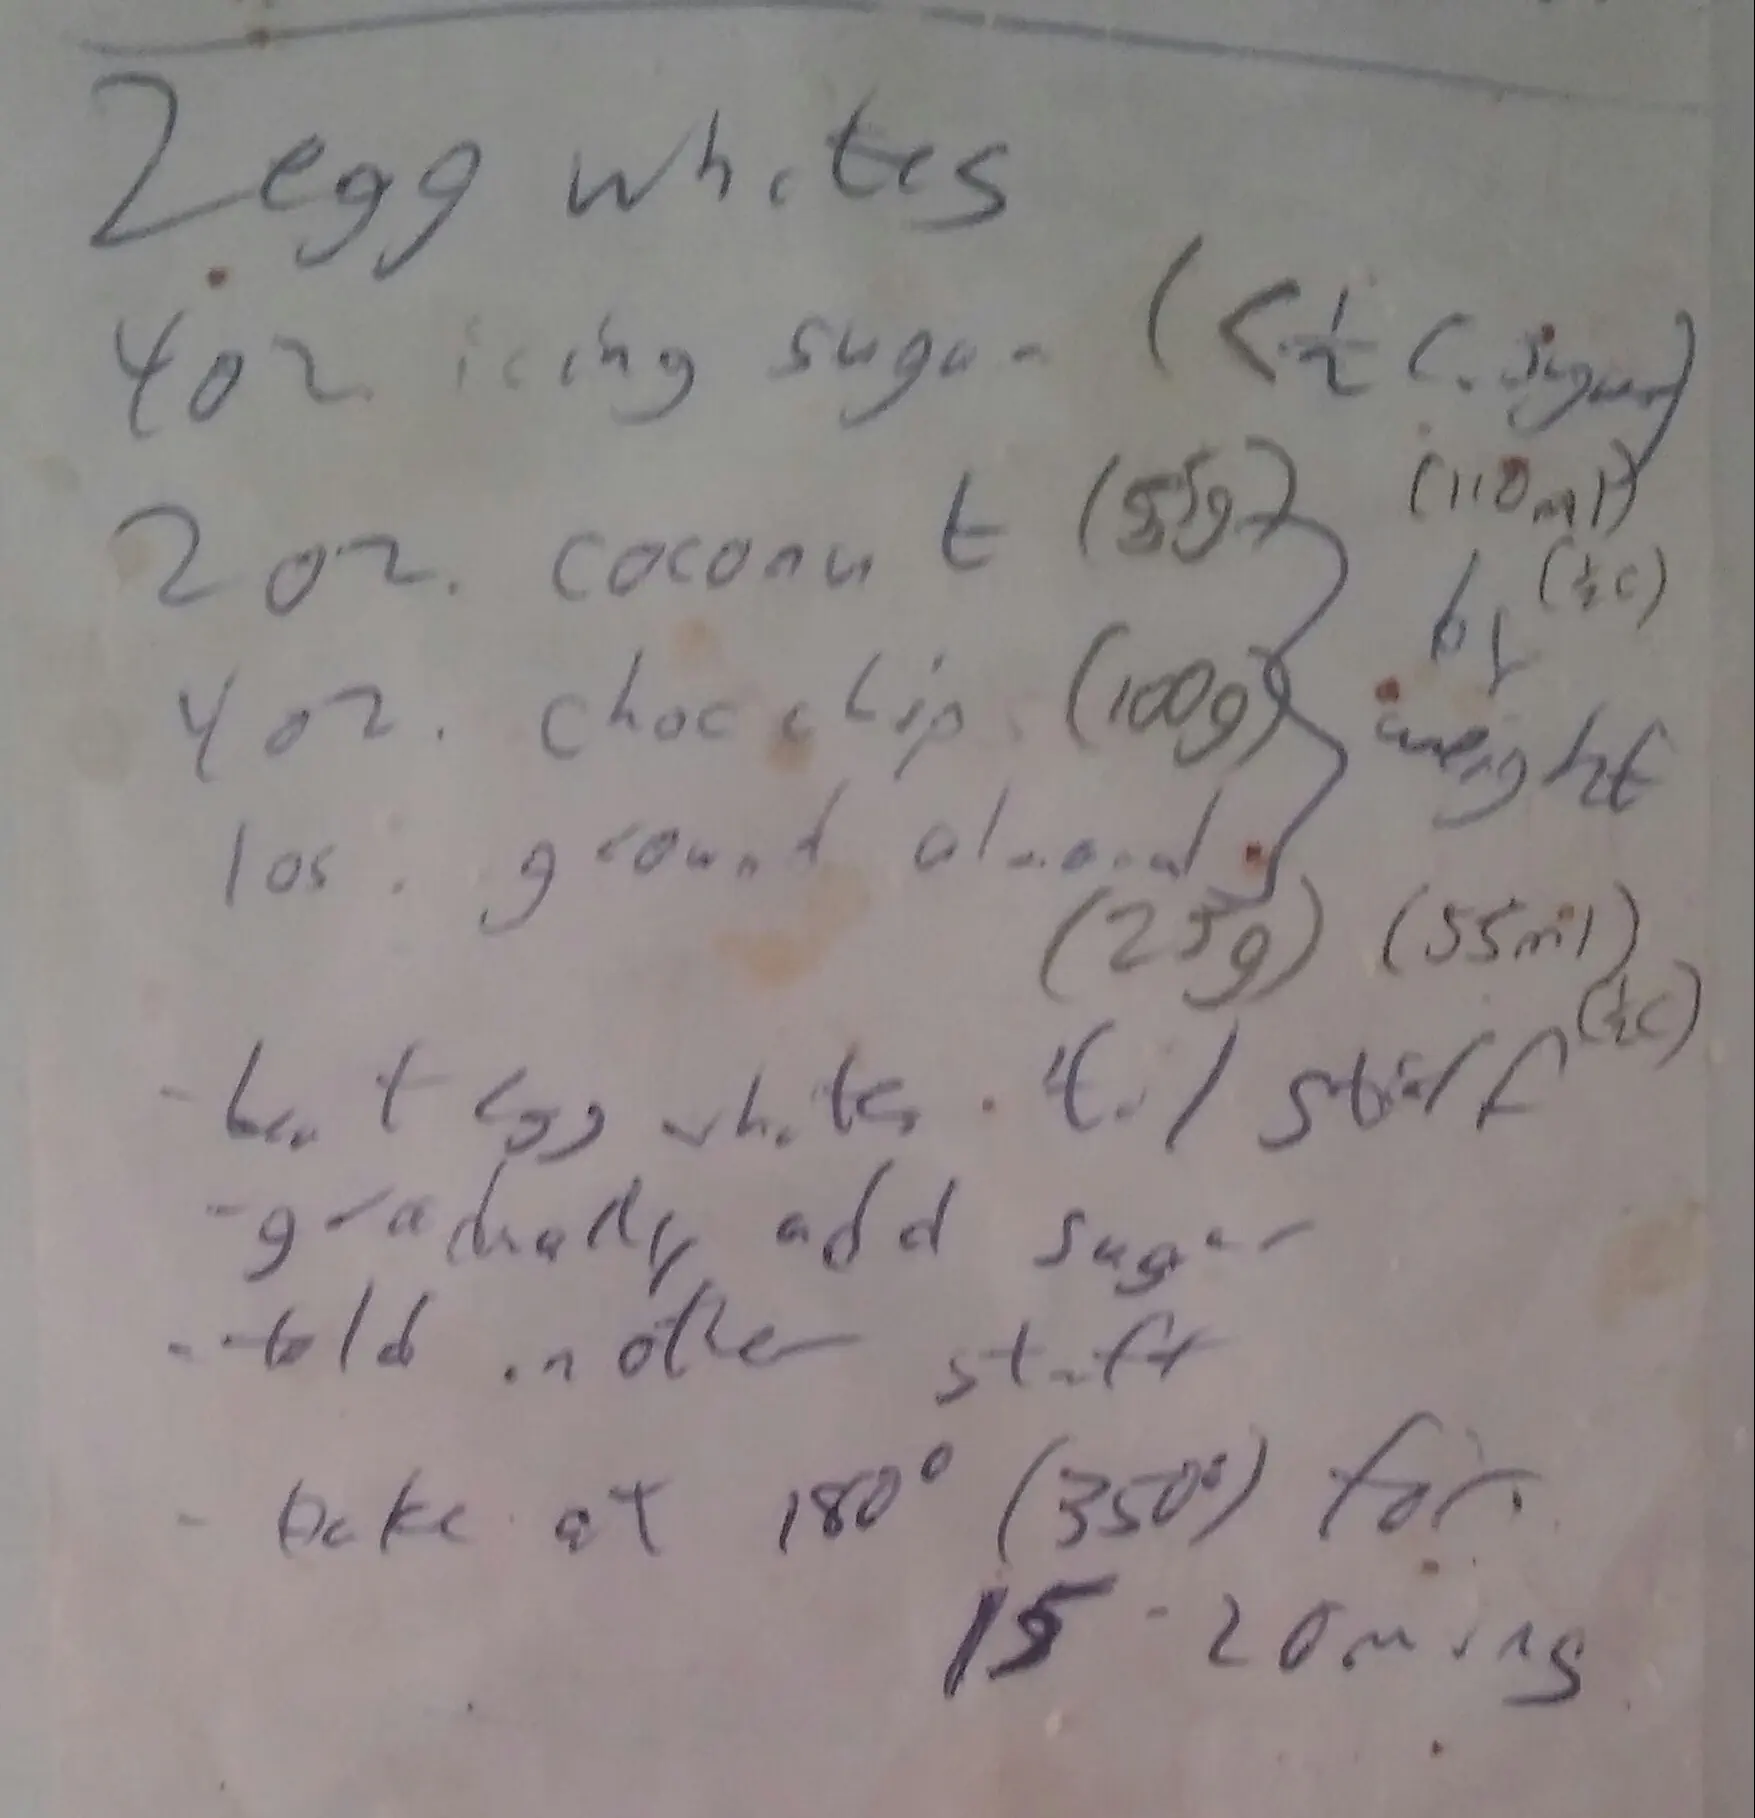 2 egg whites
4 oz. icing sugar (< 1/2 c. sugar)
2 oz. coconut (55g) (110ml) (1/2 c)
4 oz. choc chips (100g) by weight
1 oz. ground almond
(25g) (55ml) (1/2 c)
- beat egg whites til stiff
- gradually add sugar
- fold in other stuff
- bake at 180° (350°) for
15 - 20 mins